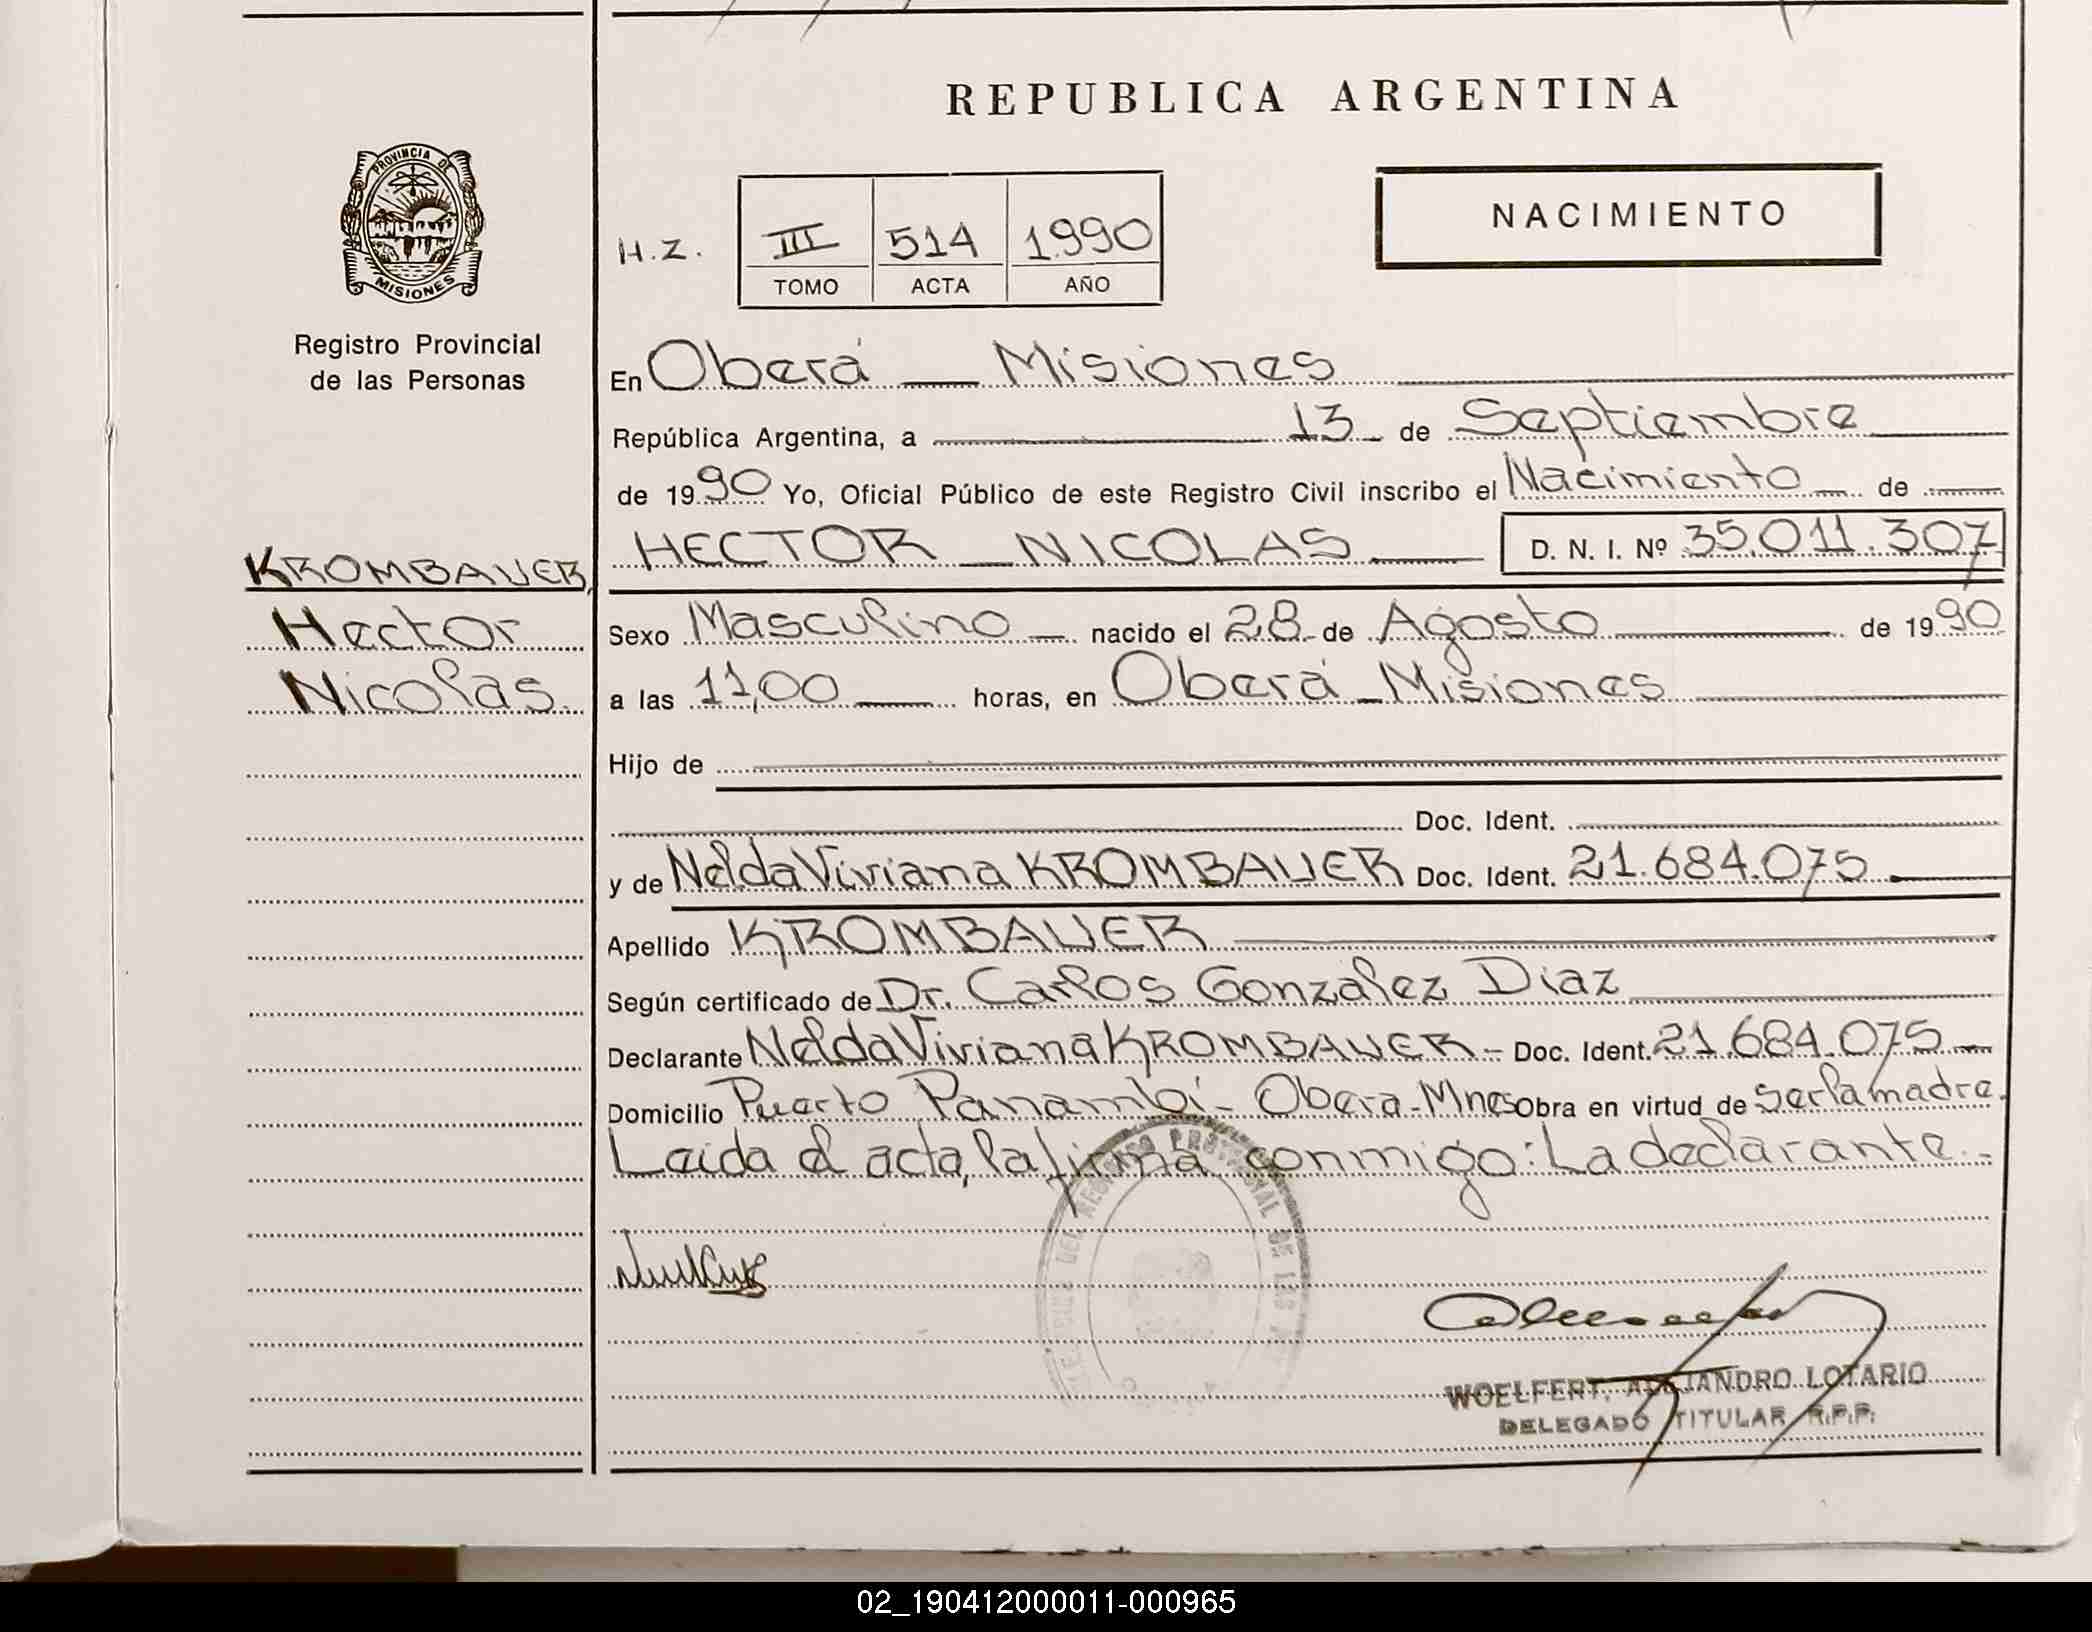 REPUBLICA ARGENTINA
NACIMIENTO
PROVINCIA DE
MISIONES
H.Z. III 514 1990
TOMO ACTA AÑO
Registro Provincial
de las Personas
En Oberá — Misiones
República Argentina, a 13 de Septiembre
de 1990 Yo, Oficial Público de este Registro Civil inscribo el Nacimiento — de
HECTOR — NICOLAS — D. N. I. Nº 35.011.307
KROMBAUER,
Hector
Nicolas
Sexo Masculino — nacido el 28 de Agosto de 1990
a las 11,00 — horas, en Oberá — Misiones
Hijo de
Doc. Ident.
y de Nelda Viviana KROMBAUER Doc. Ident. 21.684.075
Apellido KROMBAUER
Según certificado de Dr. Carlos González Diaz
Declarante Nelda Viviana KROMBAUER - Doc. Ident. 21.684.075 —
Domicilio Puerto Panambí - Obera - Mnes Obra en virtud de ser la madre.
Leída el acta, la firma conmigo: La declarante.-
WOELFERT, ALEJANDRO LOTARIO
DELEGADO TITULAR R.P.P.
02_190412000011-000965